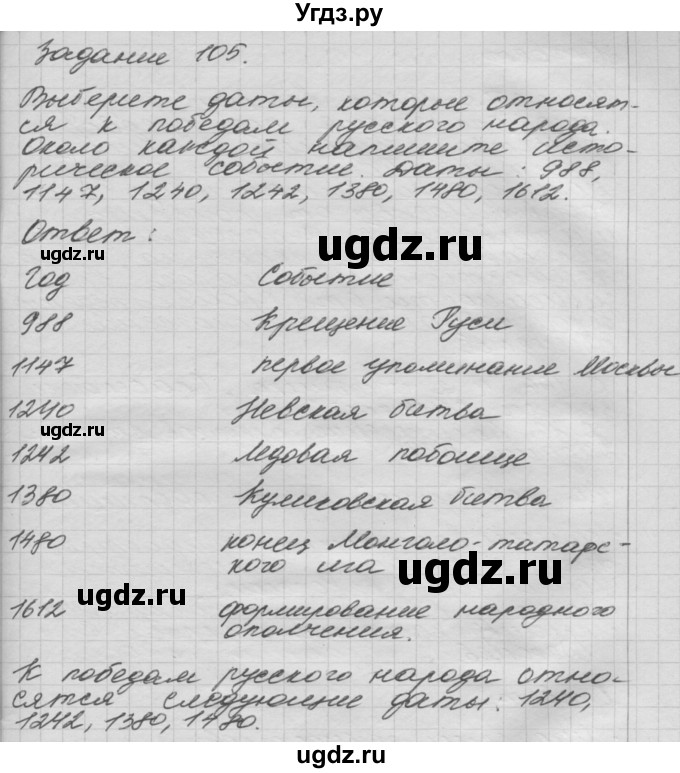 Угдз.ру
Задание 105.
Выберете даты, которые относят-
ся к победам русского народа.
Около каждой напишите исто-
рическое событие. Даты: 988,
1147, 1240, 1242, 1380, 1480, 1612.
Ответ:
ugdz.ru
ugdz.ru
Год Событие
988 Крещение Руси
1147 первое упоминание Москвы
1240 Невская битва
ugdz.ru
1242 Ледовая побоище
1380 Куликовская битва
1480 конец Монголо-татарс-
кого ига
ugdz.ru
ugdz.ru
1612 формирование народного
ополчения.
К победам русского народа отно-
сятся следующие даты: 1240,
1242, 1380, 1480.
ugdz.ru